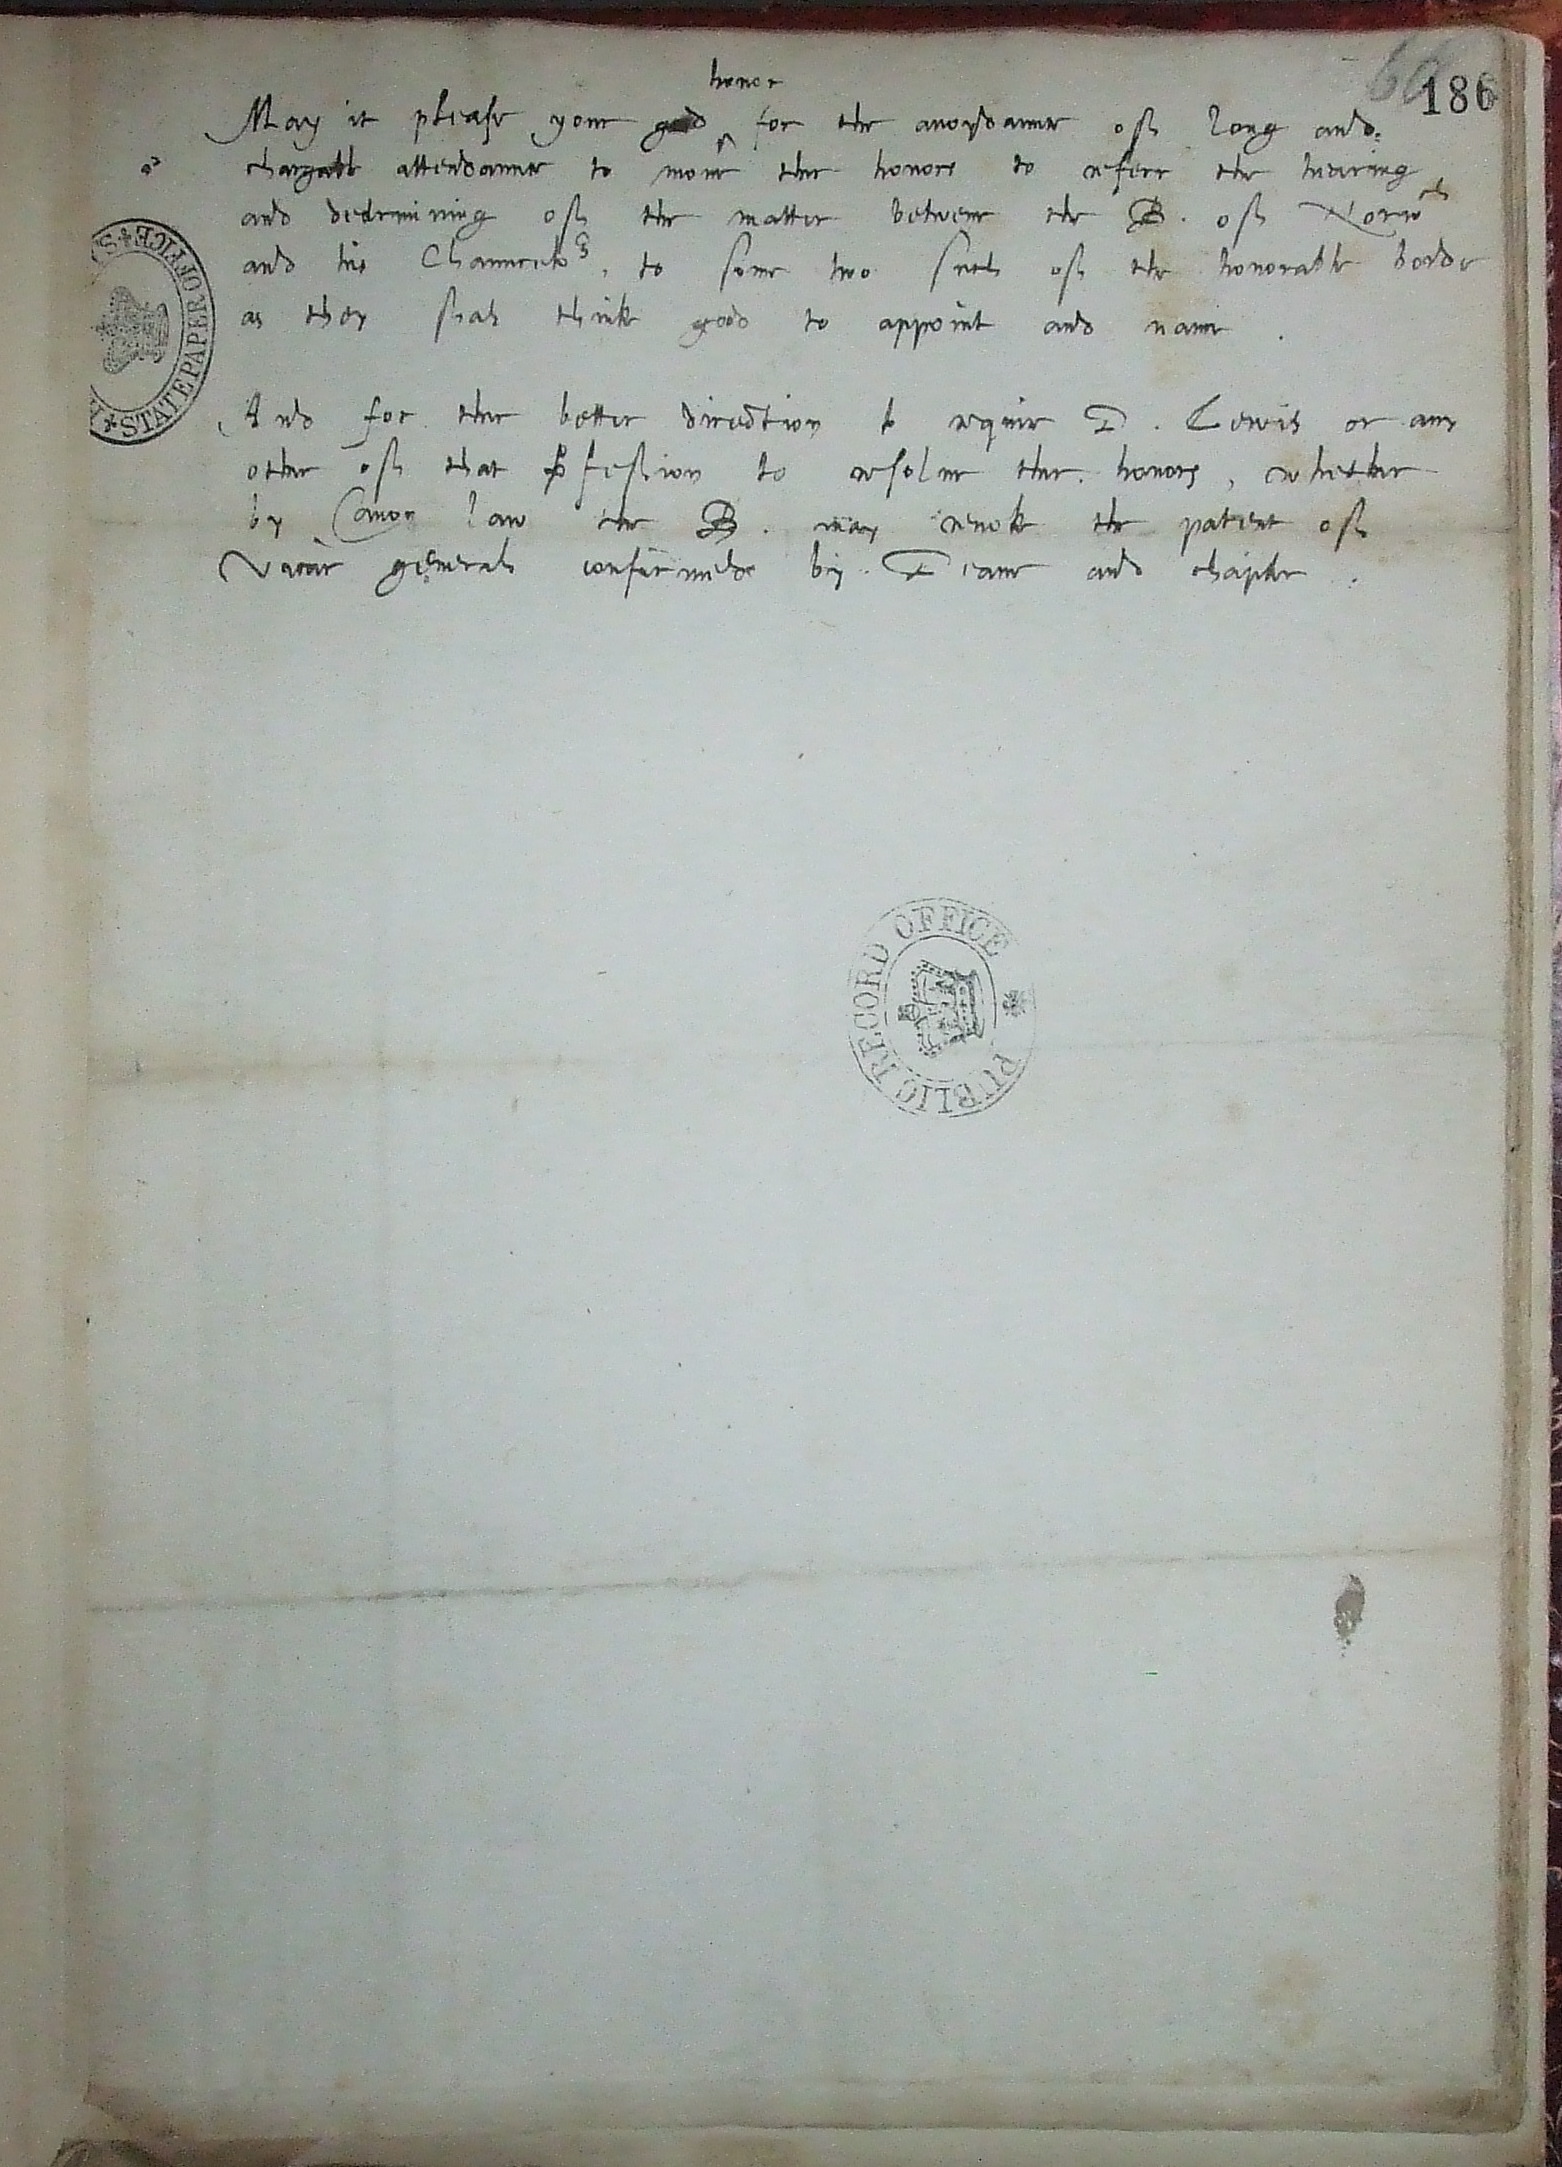 60
186
honor
May it please your good for the avoydance off long and
chargable attendance to move ther honors to referr the hearing
and determining off the matter betwene the B. off Norwch
and his Chauncelor, to some two such off the honorable borde
as they shall think good to appoint and name.
And for ther better direction to require D. Lewis or any
other off that pfession to resolve ther honors, whether
by Canon law the B. may revoke the patent off
Vicar generall confirmede by Deane and chapter.
STATE PAPER OFFICE
PUBLIC RECORD OFFICE